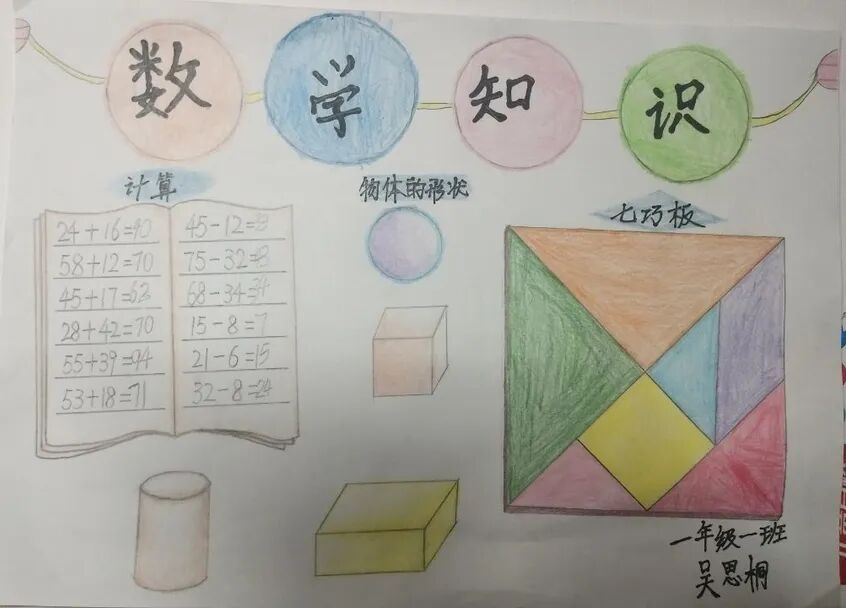 数学知识
计算
物体的形状
七巧板
24+16=40
58+12=70
45+17=62
28+42=70
55+39=94
53+18=71
45-12=
75-32=
68-34=34
15-8=7
21-6=15
32-8=24
一年级一班
吴思桐